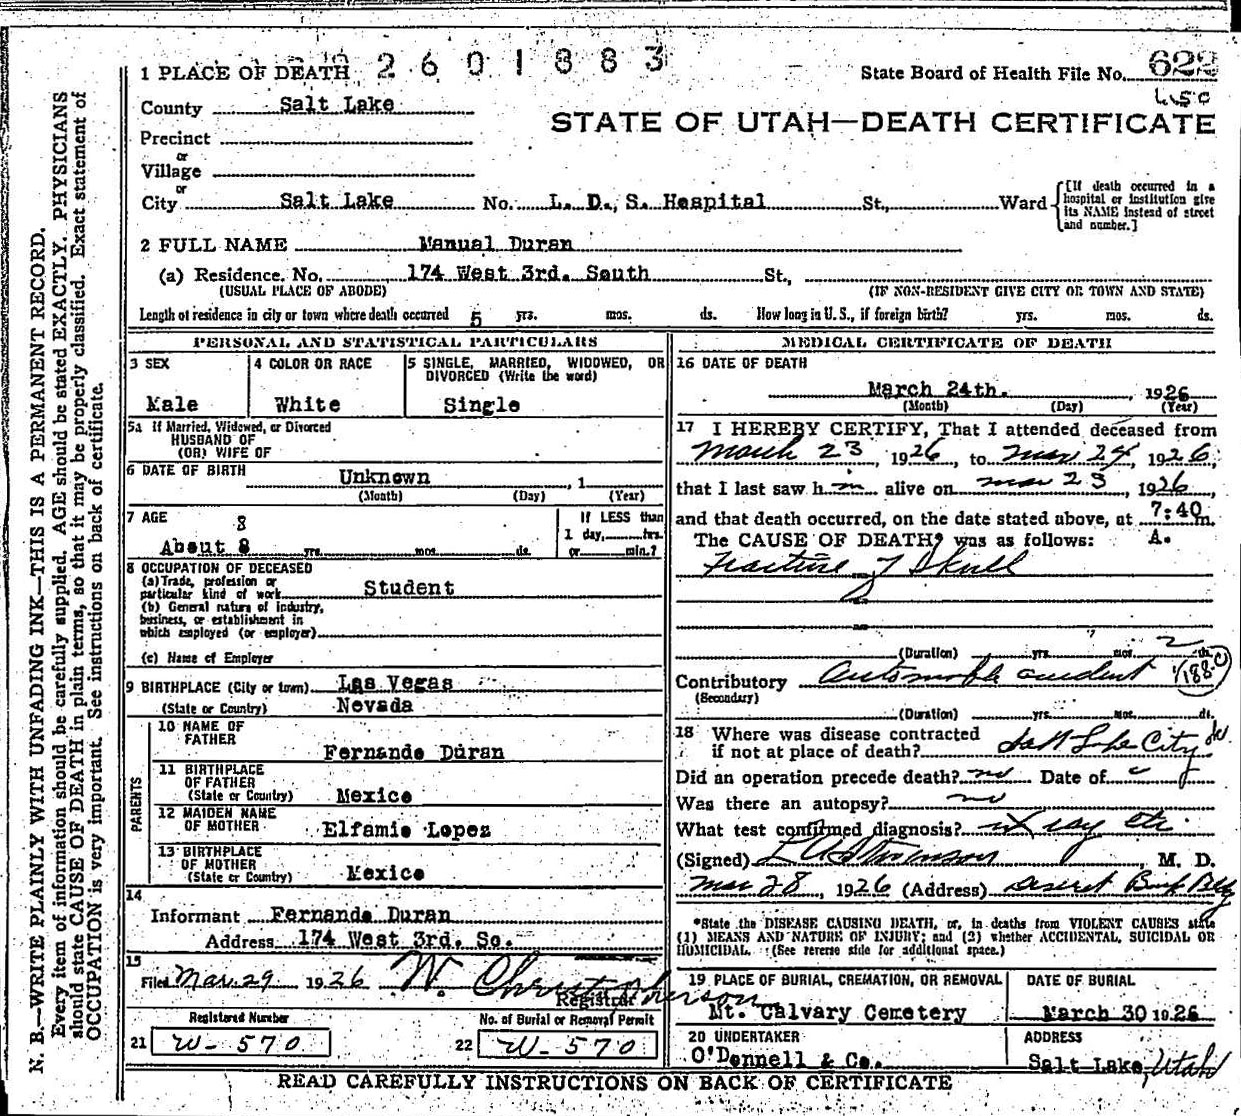 2601883
1 PLACE OF DEATH
State Board of Health File No. 622
County Salt Lake
STATE OF UTAH—DEATH CERTIFICATE
Precinct
or
Village
or
City Salt Lake No. L. D. S. Hospital St., Ward
[If death occurred in a hospital or institution give its NAME instead of street and number.]
2 FULL NAME Manual Duran
(a) Residence. No. 174 West 3rd. South St.,
(USUAL PLACE OF ABODE) (IF NON-RESIDENT GIVE CITY OR TOWN AND STATE)
Length of residence in city or town where death occurred 5 yrs. mos. ds. How long in U. S., if foreign birth? yrs. mos. ds.
PERSONAL AND STATISTICAL PARTICULARS
3 SEX
Male
4 COLOR OR RACE
White
5 SINGLE, MARRIED, WIDOWED, OR
DIVORCED (Write the word)
Single
5a If Married, Widowed, or Divorced
HUSBAND OF
(OR) WIFE OF
6 DATE OF BIRTH
Unknown , 1
(Month) (Day) (Year)
7 AGE 8
About 8 yrs. mos. ds.
If LESS than
1 day, hrs.
or min.?
8 OCCUPATION OF DECEASED
(a) Trade, profession or
particular kind of work Student
(b) General nature of industry,
business, or establishment in
which employed (or employer)
(c) Name of Employer
9 BIRTHPLACE (City or town) Las Vegas
(State or Country) Nevada
PARENTS
10 NAME OF
FATHER
Fernando Duran
11 BIRTHPLACE
OF FATHER
(State or Country) Mexico
12 MAIDEN NAME
OF MOTHER Elfamie Lopez
13 BIRTHPLACE
OF MOTHER
(State or Country) Mexico
14
Informant Fernando Duran
Address 174 West 3rd. So.
15
Filed Mar. 29 1926 W. Christopherson
Registrar
Registered Number
21 W-570
No. of Burial or Removal Permit
22 W-570
MEDICAL CERTIFICATE OF DEATH
16 DATE OF DEATH
March 24th. 1926
(Month) (Day) (Year)
17 I HEREBY CERTIFY, That I attended deceased from
March 23, 1926, to Mar 24, 1926,
that I last saw h im alive on Mar 23, 1926,
and that death occurred, on the date stated above, at 7:40 m.
The CAUSE OF DEATH* was as follows: A.
Fracture of Skull
(Duration) yrs. mos. 2 ds.
Contributory Automobile accident 188-c
(Secondary)
(Duration) yrs. mos. ds.
18 Where was disease contracted
if not at place of death? Salt Lake City
Did an operation precede death? no Date of
Was there an autopsy? no
What test confirmed diagnosis? X ray etc.
(Signed) M. D.
Mar 28, 1926 (Address) Deseret Bank Bldg
*State the DISEASE CAUSING DEATH, or, in deaths from VIOLENT CAUSES state
(1) MEANS AND NATURE OF INJURY; and (2) whether ACCIDENTAL, SUICIDAL OR
HOMICIDAL. (See reverse side for additional space.)
19 PLACE OF BURIAL, CREMATION, OR REMOVAL
Mt. Calvary Cemetery
DATE OF BURIAL
March 30 1926
20 UNDERTAKER
O'Donnell & Co.
ADDRESS
Salt Lake, Utah
READ CAREFULLY INSTRUCTIONS ON BACK OF CERTIFICATE
N. B.—WRITE PLAINLY WITH UNFADING INK—THIS IS A PERMANENT RECORD.
Every item of information should be carefully supplied. AGE should be stated EXACTLY. PHYSICIANS
should state CAUSE OF DEATH in plain terms, so that it may be properly classified. Exact statement of
OCCUPATION is very important. See instructions on back of certificate.